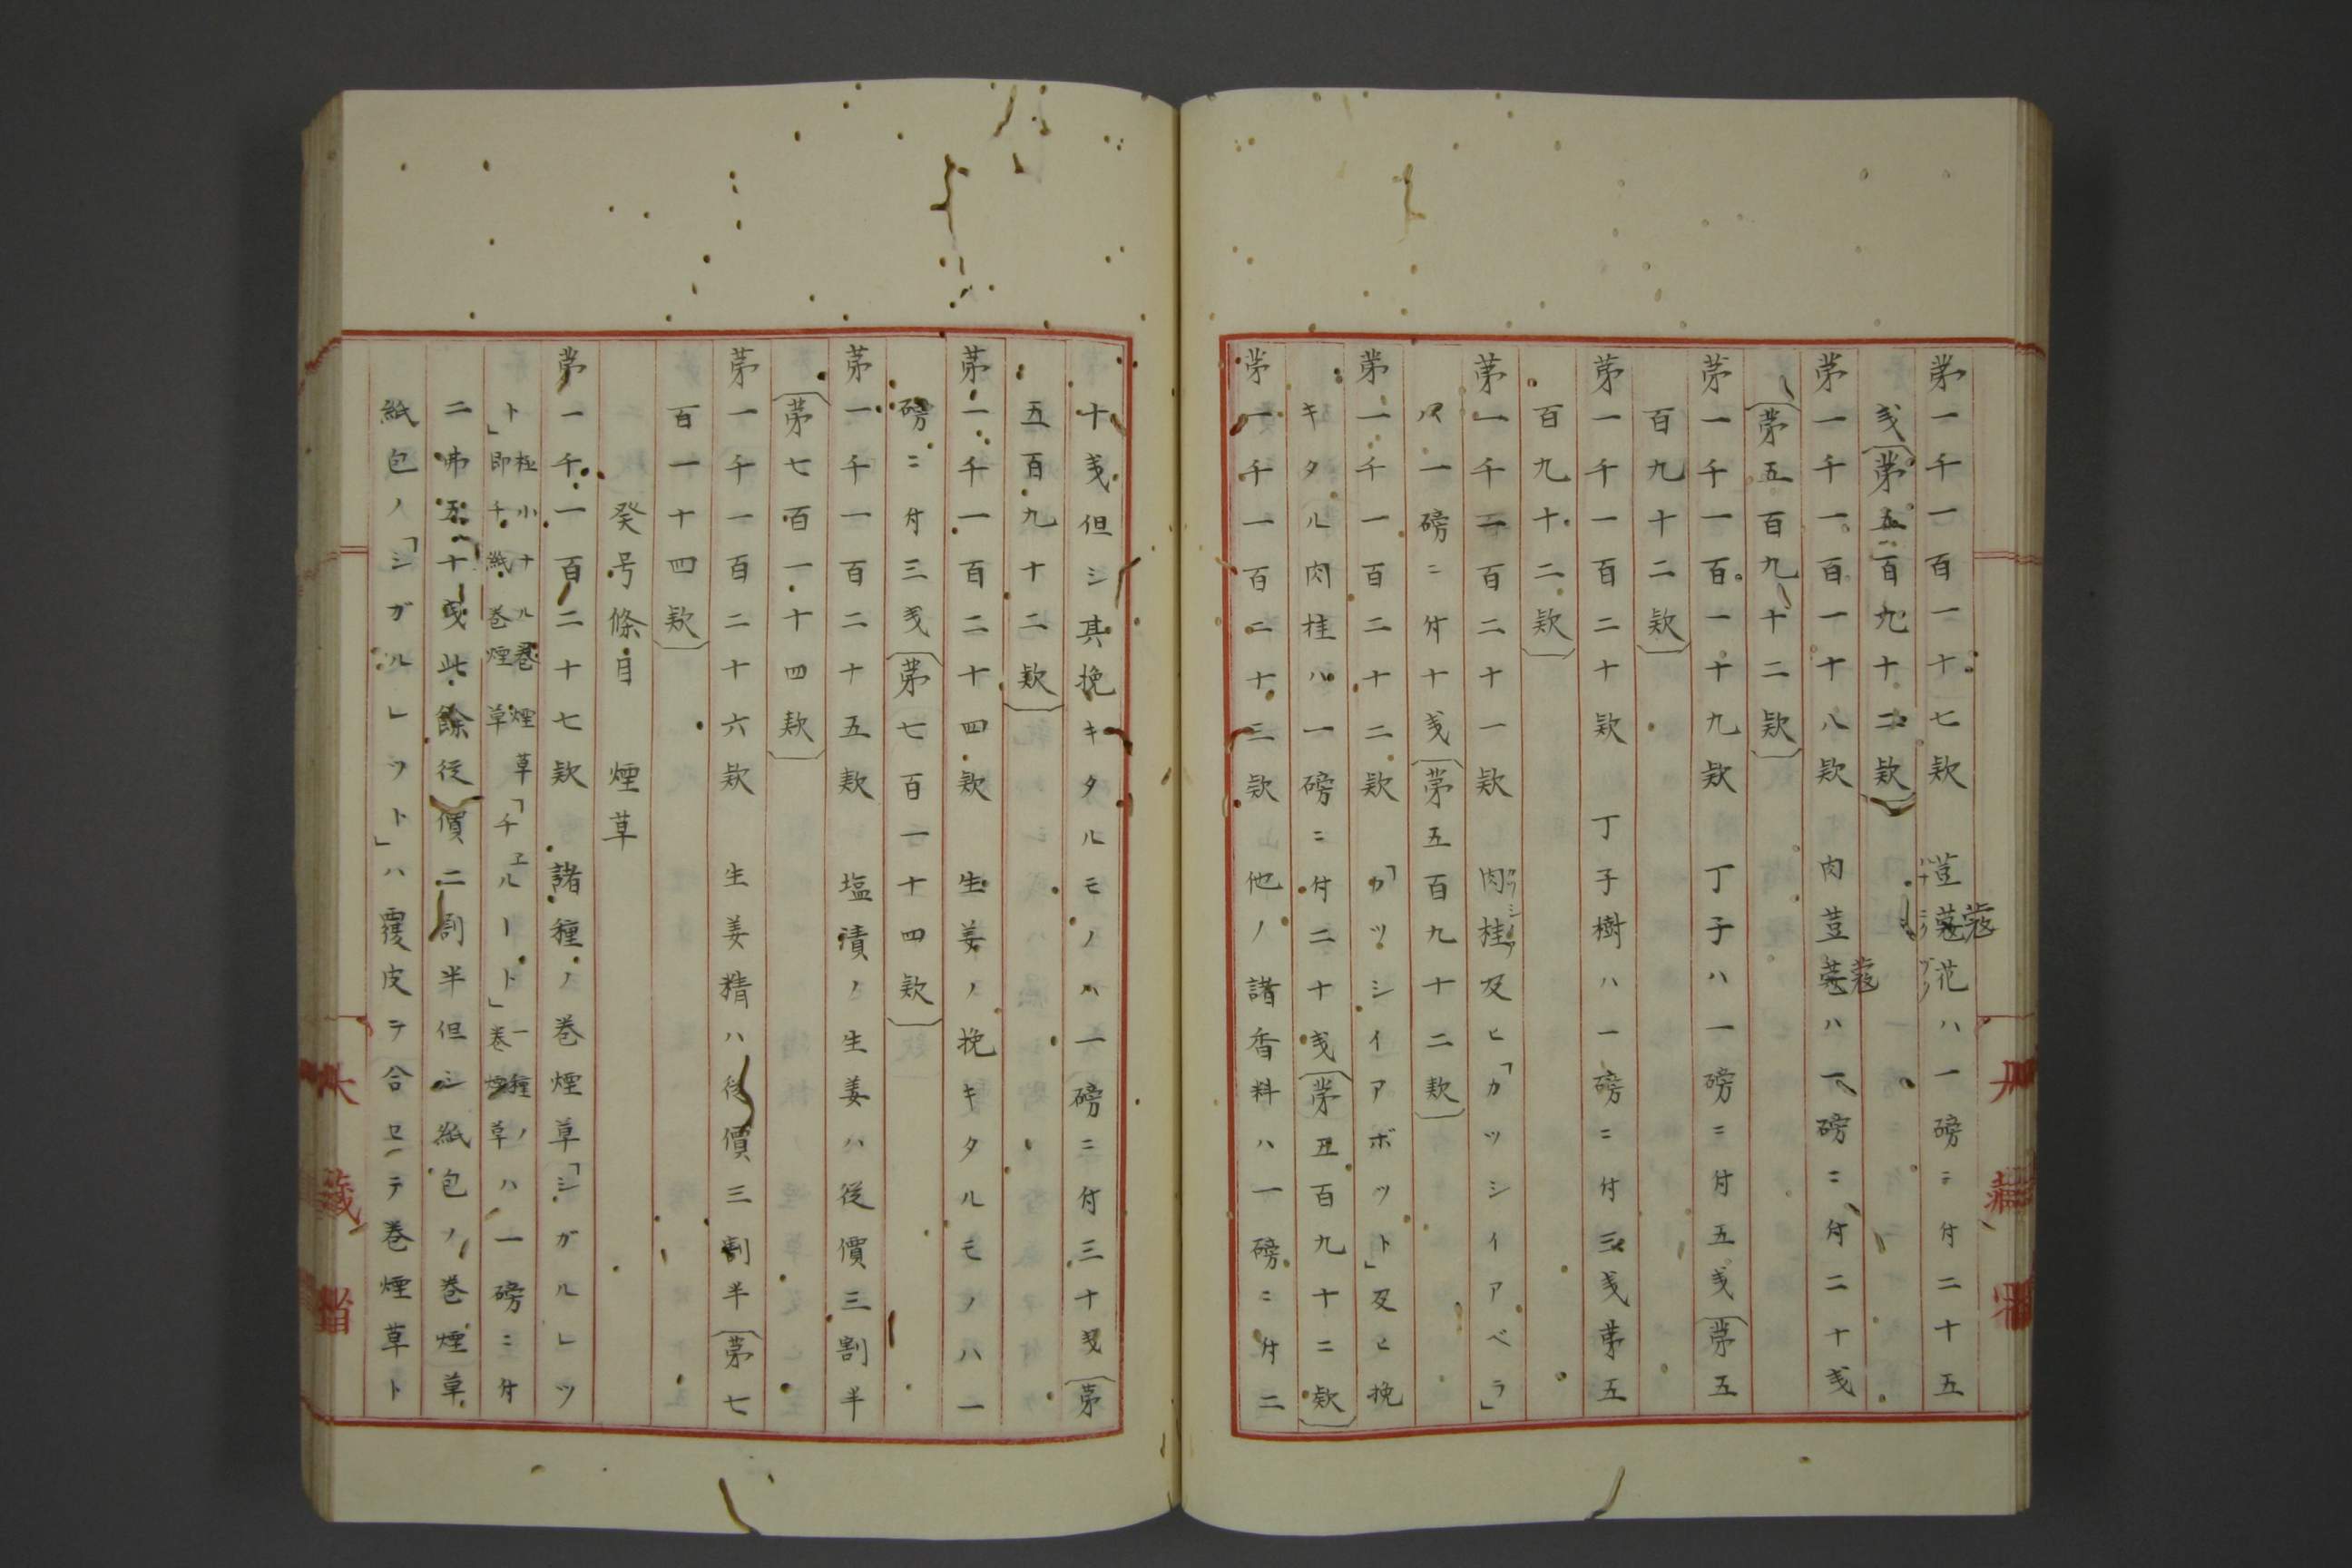 第一千一百一十七欵　荳蔲花ハ一磅ニ付二十五
戔（第五百九十二欵）
第一千一百一十八欵　肉荳蔲ハ一磅ニ付二十戔
（第五百九十二欵）
第一千一百一十九欵　丁子ハ一磅ニ付五戔（第五
百九十二欵）
第一千一百二十欵　丁子樹ハ一磅ニ付三戔第五
百九十二欵）
第一千一百二十一欵　肉桂及ヒ「カツシイアベラ」
ハ一磅ニ付十戔（第五百九十二欵）
第一千一百二十二欵　「カツシイアボツト」及ヒ挽
キタル肉桂ハ一磅ニ付二十戔（第五百九十二欵）
第一千一百二十三欵　他ノ諸香料ハ一磅ニ付二
十戔但シ其挽キタルモノハ一磅ニ付三十戔（第
五百九十二欵）
第一千一百二十四欵　生姜ノ挽キタルモノハ一
磅ニ付三戔（第七百一十四欵）
第一千一百二十五欵　塩漬ノ生姜ハ從價三割半
（第七百一十四欵）
第一千一百二十六欵　生姜精ハ從價三割半（第七
百一十四欵）
癸号條目　煙草
第一千一百二十七欵　諸種ノ巻煙草「シガルレツ
ト」極小ナル巻煙草即チ紙巻煙草「チエルート」一種ノ巻煙草ハ一磅ニ付
二弗五十戔此餘從價二割半但シ紙包ノ巻煙草
紙包ノ「シガルレツト」ハ覆皮ヲ合セテ巻煙草ト
大藏省